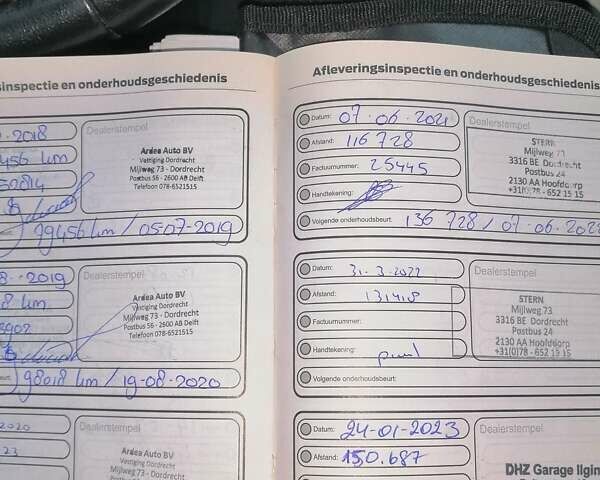 sinspectie en onderhoudsgeschiedenis
2018
Dealerstempel
456 km
Ardea Auto BV
Vestiging Dordrecht
Mijlweg 73 - Dordrecht
Postbus 56 - 2600 AB Delft
Telefoon 078-6521515
79456 km / 05-07-2019
2019
Dealerstempel
8 km
Ardea Auto BV
Vestiging Dordrecht
Mijlweg 73 - Dordrecht
Postbus 56 - 2600 AB Delft
Telefoon 078-6521515
98018 km / 19-08-2020
2020
Dealerstempel
23
Ardea Auto BV
Vestiging Dordrecht
Mijlweg 73 - Dordrecht
Postbus 56 - 2600 AB Delft
Afleveringsinspectie en onderhoudsgeschiedenis
Datum: 07.06.2021
Dealerstempel
Afstand: 116728
Factuurnummer: 25445
Handtekening:
STERN
Mijlweg 73
3316 BE Dordrecht
Postbus 24
2130 AA Hoofddorp
+31(0)78 - 652 15 15
Volgende onderhoudsbeurt: 136 728 / 07.06.202
Datum: 31.3.2022
Dealerstempel
Afstand: 131418
Factuurnummer:
Handtekening:
STERN
Mijlweg 73
3316 BE Dordrecht
Postbus 24
2130 AA Hoofddorp
+31(0)78 - 652 15 15
Volgende onderhoudsbeurt:
Datum: 24-01-2023
Dealerstempel
Afstand: 150.687
DHZ Garage Ilgin